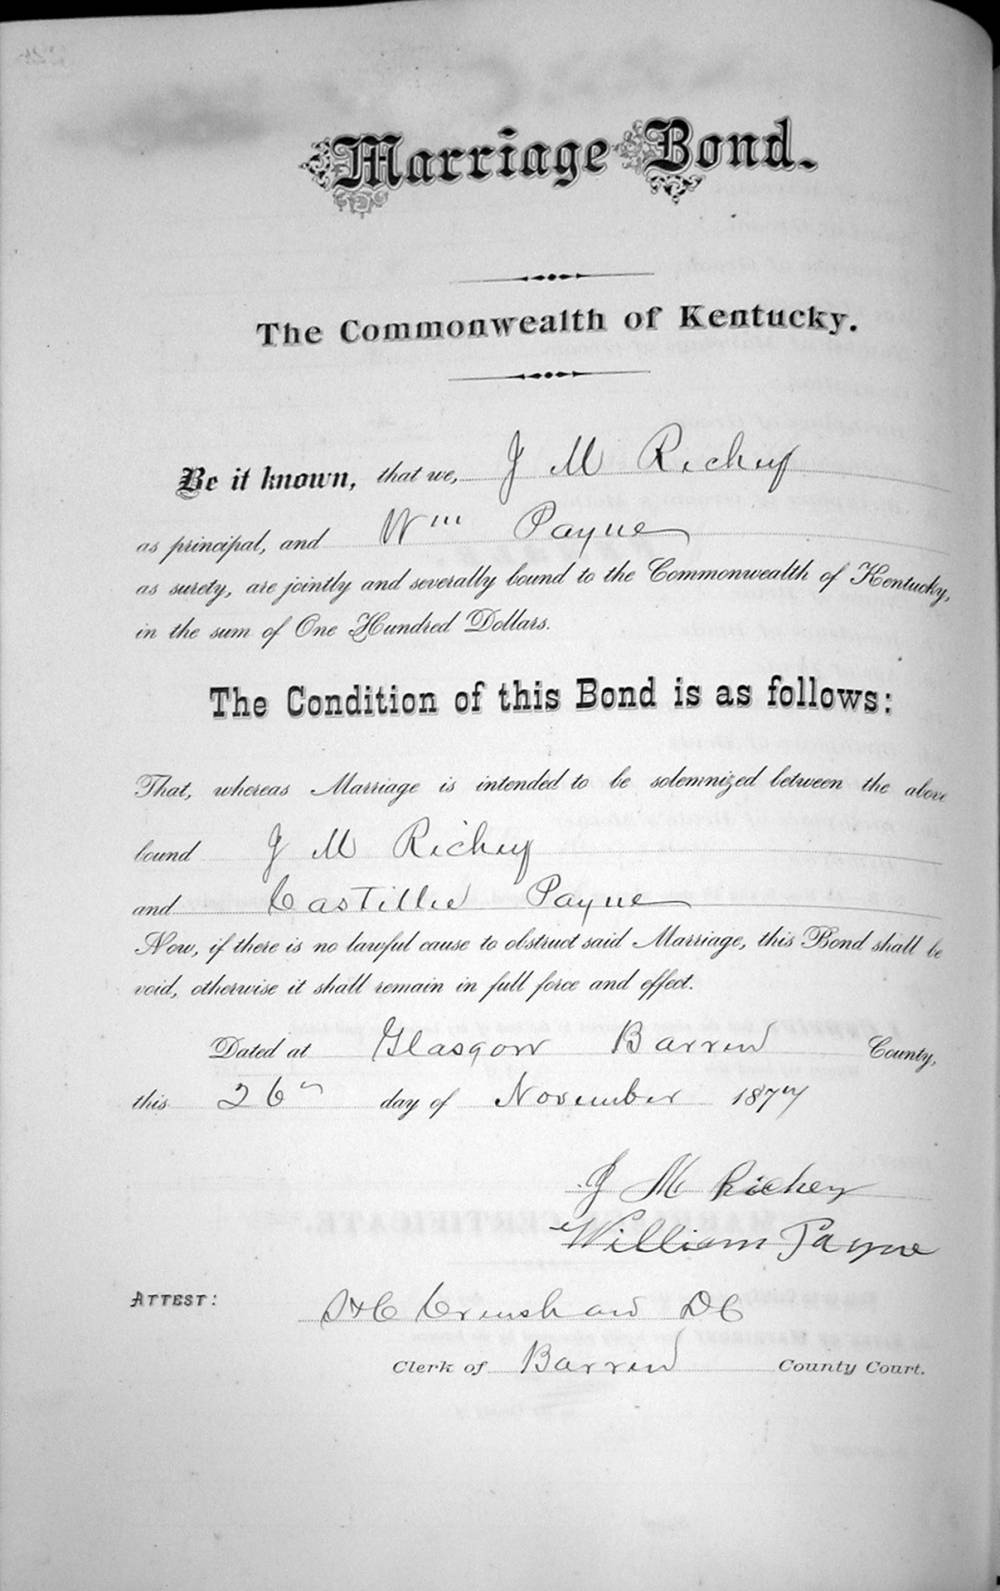 Marriage Bond.
The Commonwealth of Kentucky.
Be it known, that we, J M Richey
as principal, and Wm Payne
as surety, are jointly and severally bound to the Commonwealth of Kentucky,
in the sum of One Hundred Dollars.
The Condition of this Bond is as follows:
That, whereas Marriage is intended to be solemnized between the above
bound J M Richey
and Castillie Payne
Now, if there is no lawful cause to obstruct said Marriage, this Bond shall be
void, otherwise it shall remain in full force and effect.
Dated at Glasgow Barren County,
this 26th day of November 1877
J M Richey
William Payne
ATTEST: Crenshaw DC
Clerk of Barren County Court.